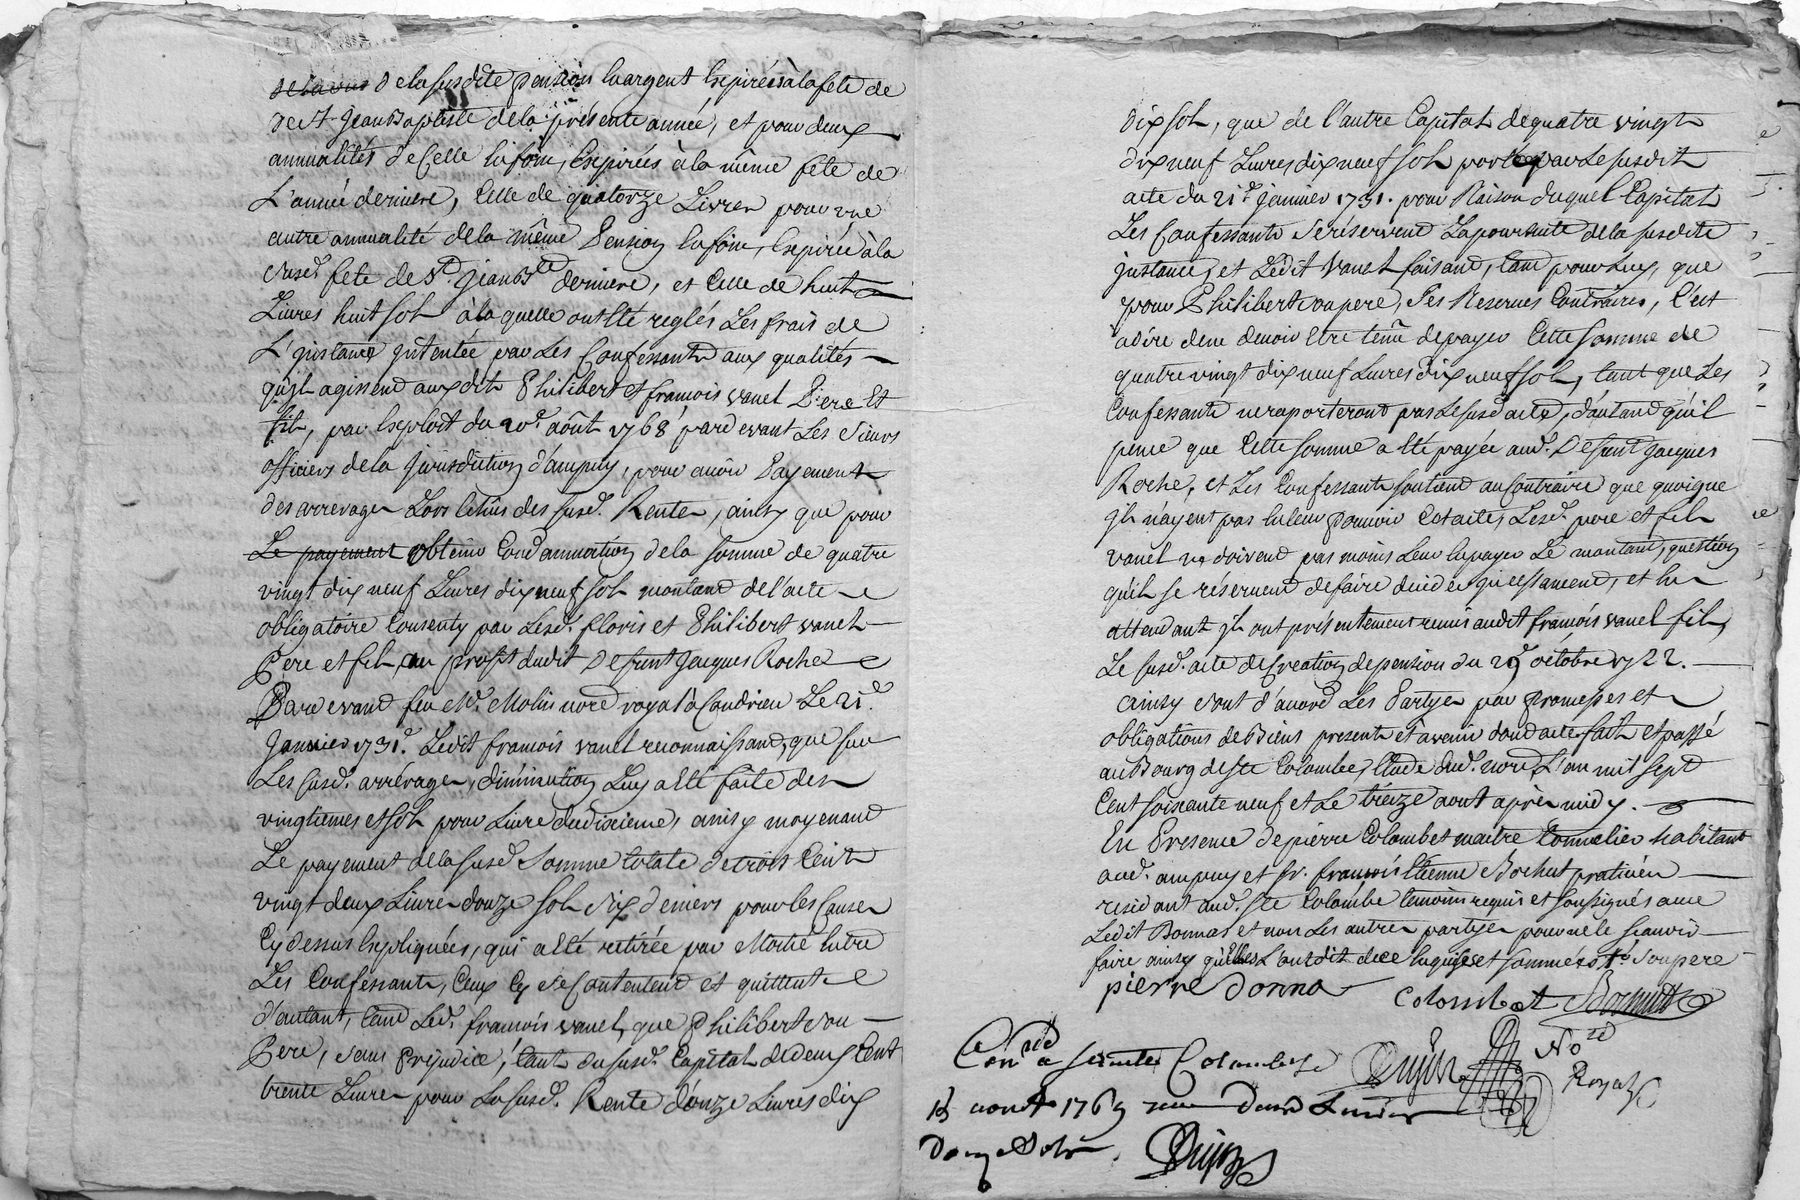 de la susdite pension en argent expirées à la fete de
de St Jean Baptiste de la présente année, et pour deux
annualités de celle en foin, expirées à la même fete de
L'année derniere, celle de quatorze Livres pour une
autre annualité de la même Pension en foin, expirée à la
susd. fete de St. Jean Bte derniere, et celle de huit
Livres huit sols à laquelle ont été reglés Les frais de
L'instance intentée par Les Confessants aux qualités
qu'ils agissent auxdits Philibert et françois vanel Pere et
fils, par exploit du 20e. août 1768 pardevant Les sieurs
officiers de la Jurisdiction d'ampuis, pour avoir Payement
des arrerages Lors échus des susd. Rentes, ainsy que pour
Le payement obtenir condamnation de la somme de quatre
vingt dix neuf Livres dix neuf sols montant de l'acte
obligatoire consenty par Lesd. floris et Philibert vanel
Pere et fils au profit dudit Defunt Jacques Roche
Pardevant feu Me. Molin nore. royal à Condrieu Le 21e.
Janvier 1731. Ledit françois vanel reconnaissant, que sur
Les susd. arrérages, diminution Luy a été faite des
vingtiemes et sols pour Livre du dixieme, ainsy moyenant
Le payement de la susd. somme totale de trois Cent
vingt deux Livres douze sols six deniers pour les Causes
Cy dessus expliquées, qui a été retirée par moitié entre
Les Confessants, Ceux Cy se Contentent et quittent
d'autant, tant Led. françois vanel, que Philibert son
Pere, sans préjudice, tant du susd. Capital de deux Cent
trente Livres pour La susd. Rente d'onze Livres dix
dix sols, que de l'autre Capital de quatre vingt
dix neuf Livres dix neuf sols porté par Le susdit
acte du 21e. Janvier 1731. pour Raison duquel Capital
Les Confessants se réservent La poursuite de la susdite
instance, et Ledit Vanel faisant, tant pour Luy, que
pour Philibert son pere, ses Reserves Contraires, c'est
adire de ne devoir être tenû de payer Cette somme de
quatre vingt dix neuf Livres dix neuf sols, tant que Les
Confessants ne raporteront pas Le susd. acte, d'autant qu'il
pense que Cette somme a été payée aud. Defunt Jacques
Roche, et Les Confessants soutenant au Contraire que quoique
ils n'ayent pas en leur pouvoir Cet acte, Lesd. pere et fils
vanel ne doivent pas moins Leur en payer Le montant, question
qu'ils se réservent de faire decider incessament, et en
attendant ils ont présentement remis audit françois vanel fils,
Le susd. acte de Création de pension du 29e octobre 1722.
ainsy sont d'acord Les Partyes par promesses et
obligations de Biens presents et avenir dont acte fait et passé
au Bourg de Ste Colombe, Etude dud. nore. L'an mil sept
Cent soixante neuf et Le treize aout après midy.
En Presence de pierre Colombet maitre tonnelier habitant
aud. ampuis et Sr. françois Etienne Bochut praticien
residant aud. Ste Colombe temoins requis et soussignés avec
Ledit Donnat et non Les autres partyes pour ne le scavoir
faire ainsy qu'elles L'ont dit de ce enquises et sommées son pere
pierre donna
Colombet Bochutt
Conlé a sainte Colombe Dujon No.re
Royal
15 aout 1769
Douze Sols. Dujon